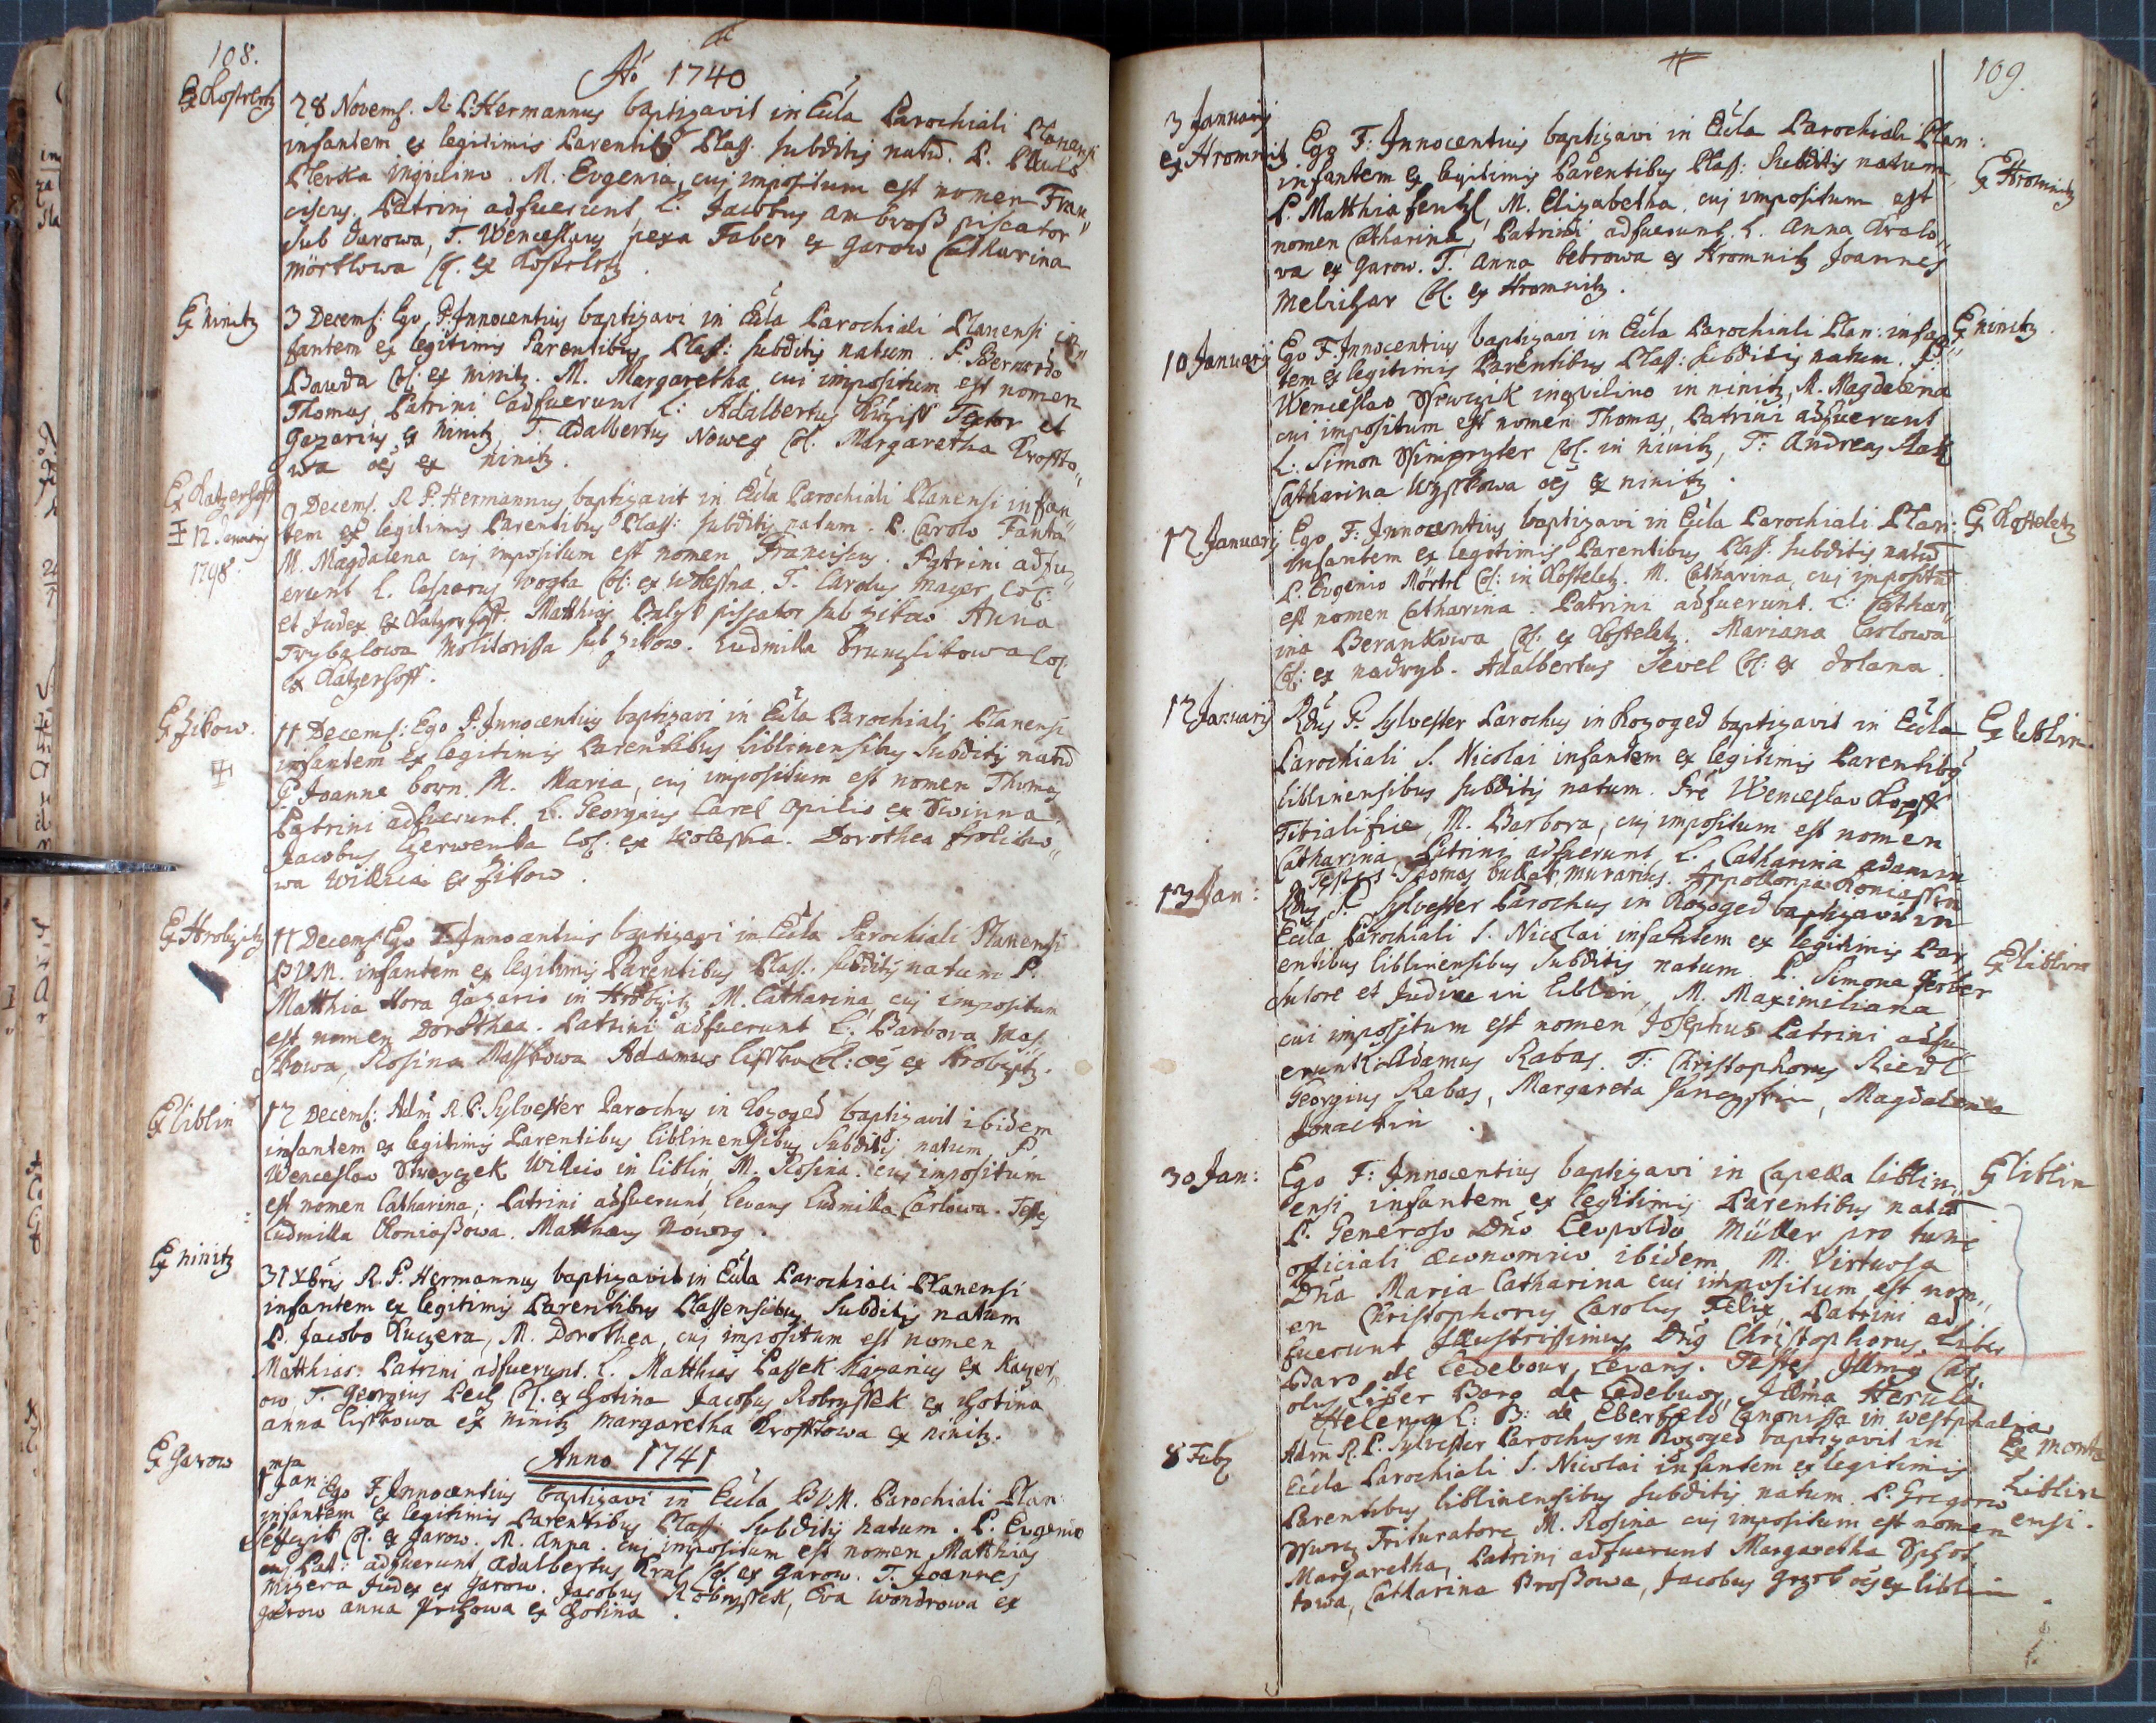 108.
Aō 1740
Ex Kosteletz
28 Novemb. R. P. Hermannus baptizavit in Eccla Parochiali Planensi
infantem ex legitimis Parentib9 Plass: subditis natū. P. Paulo
inquilino. M. Eugenia, cuj impositum est nomen Fran„
ciscus. Patrini adfuerunt, L. Jacobus Ambroß piscator
sub Darowa, T. Wenceslaus pexa Faber ex Garow Catharina
Mörtlowa Col. ex Kosteletz.
Ex ninitz
3 Decemb: Ego P: Innocentius baptizavi in Eccla Parochiali Planensi in
fantem ex legitimis Parentibus Plass: subditis natum. P: Bernardo
Bauda Col: ex ninitz. M. Margaretha cui impositum est nomen
Thomas, Patrini adfuerunt L: Adalbertus Textor et
Gazarius ex ninitz, T. Adalbertus Noweg Col. Margaretha Krofto„
wa oes ex ninitz.
Ex Katzerhoff
‡ 12 Januarij
1798.
9 Decemb. R P. Hermannus baptizavit in Eccla Parochiali Planensi infan„
tem ex legitimis Parentibus Plass: subditis natum. P. Carolo Fanta
M. Magdalena cuj impositum est nomen Franciscus. Patrini adfu„
erunt L. Casparus Wogta Col: ex Wolessna. T. Carolus Mayer Col:
et Judex ex Katzerhoff. Matthias piscator sub zikow Anna
Trybalowa Molitorissa sub zikow. Ludmilla Col:
ex Katzerhoff.
Ex zikow.
‡
11 Decemb: Ego P. Innocentius baptizavi in Eccla Parochiali Planensi
infantem ex legitimis Parentibus Liblinensibus subditis natū
P. Joanne born. M. Maria, cuj impositum est nomen Thomas
Patrini adfuerunt. L. Georgius Carel Opilio ex Swinna.
Jacobus Czerwenka Col: ex Wolessna. Dorothea
wa Willica ex zikow.
Ex Hrobczitz
11 Decemb: Ego F. Innocentius baptizavi in Eccla Parochiali Planensi
BVM. infantem ex legitimis Parentibus Plass: subditis natum P.
Matthia Hora gazario in Hrobczitz M. Catharina, cuj impositum
est nomen Dorothea. Patrini adfuerunt L: Barbora Mas„
stowa, Rosina Masstowa Adamus Col: oes ex Hrobczitz.
Ex liblin
12 Decemb: Adm R. P. Sylvester Parochus in Kozoged baptizavit ibidem
infantem ex legitimis Parentibus liblinensibus subditis natum P.
Wenceslao Willico in liblin, M. Rosina. cuj impositum
est nomen Catharina; Patrini adfuerunt, levans Ludmilla Carlowa. Testes
Ludmilla Koniaßowa. Matthaeus Noweg.
Ex ninitz
31 Xbris R. P. Hermannus baptizavit in Eccla Parochiali Planensi
infantem ex legitimis Parentibus Plassensibus subditis natum
P. Jacobo Kuczera, M. Dorothea, cuj impositum est nomen
Matthias: Patrini adfuerunt. L. Matthias Passek ex Kazer„
ow, T. Georgius Pech Col. ex Chotina Jacobus Robryssek ex Chotina
Anna Listkowa ex ninitz Margaretha Krofttowa ex ninitz.
Anno 1741
Ex Garow
1 ma Jan: Ego F. Innocentius baptizavi in Eccla B V.M. Parochiali Plan:
infantem ex legitimis Parentibus Plass: subditis natum. P. Eugenio
Col. ex Garow. M. Anna. cuj impositum est nomen Matthias
Pat: adfuerunt Adalbertus Kral Col. ex Garow. T. Joannes
Mizera Judex ex Garow. Jacobus Robryssek, Eva Wondrowa ex
garow anna ex Chotina.
109.
3 Januarij
ex Hromnitz
Ego F: Innocentius baptizavi in Eccla Parochiali Plan:
infantem ex legitimis Parentibus Plass: subditis natum
P. Matthia fenhl, M. Elizabetha. cuj impositum est
nomen Catharina, Patrini adfuerunt. L. Anna Kralo„
va ex Garow. T. Anna Petrowa ex Hromnitz Joannes
Melichar Col. ex Hromnitz.
Ex Hromnitz
10 Januarij
Ego F. Innocentius baptizavi in Eccla Parochiali Plan: infan„
tem ex legitimis Parentibus Plass: subditis natum. P.
Wenceslao inquilino in ninitz, M. Magdalena
cui impositum est nomen Thomas, Patrini adfuerunt
L: Simon Col. in ninitz, T: Andreas
Catharina oes ex ninitz.
Ex ninitz.
12 Januarij
Ego F: Innocentius baptizavi in Eccla Parochiali Plan:
Infantem ex legitimis Parentibus Plass: subditis natū
P. Eugenio Mörtel Col: in Kosteletz. M. Catharina, cuj impositū
est nomen Catharina. Patrini adfuerunt. L: Cathar„
ina Berankowa Col: ex Kosteletz. Mariana Carlowa
Col: ex nadryb. Adalbertus Tevel Col: ex dolana.
Ex Kosteletz
12 Januarij
Rdus P. Sylvester Parochus in Kozoged baptizavit in Eccla
Parochiali S. Nicolai infantem ex legitimis Parentib9
liblinensibus subditis natum. Pre Wenceslao
Tibialifice, M. Barbora, cuj impositum est nomen
Catharina, Patrini adfuerunt, L. Catharina adamin
Testes Thomas murarius. Appollonia Koniassin
Ex liblin.
13 Jan:
Rdus P. Sylvester Parochus in Kozoged baptizavit in
Eccla Parochiali S. Nicolai infantem ex legitimis Par
entibus liblinensibus subditis natum. P. Simone Gerber
sutore et Judice in liblin, M. Maximiliana
cui impositum est nomen Josephus Patrini adfu
erunt L: Adamus Rabas. T: Christophorus Riedl
Georgius Rabas, Margareta, Magdalena
Ex liblin
30 Jan:
Ego F: Innocentius baptizavi in Capella liblin„
ensi infantem ex legitimis Parentibus natū
P. Generoso Dno Leopoldo Müller pro tunc
officiali oeconomico ibidem, M. Virtuosa
Dna Maria Catharina cuj impositum est nom„
en Christophorus Carolus Felix, Patrini ad
fuerunt Illustrissimus Dnus Christophorus Liber
Baro de Ledebour, Levans. Testes Illmus Car„
olus Liber Baro de Ledebour, Illma Herula
Helena L: B: de Eberfeld Canonissa in westphalia
Ex liblin
8 Feb
Adm R. P. Sylvester Parochus in Kozoged baptizavit in
Eccla Parochiali S. Nicolai infantem ex legitimis
Parentibus liblinensibus subditis natum. P. Gregorio
Trituratore M. Rosina cuj impositum est nomen
Margaretha, Patrini adfuerunt Margaretha
towa, Catharina Broßowa, Jacobus oes ex liblin
Ex monte
Liblin
ensi.